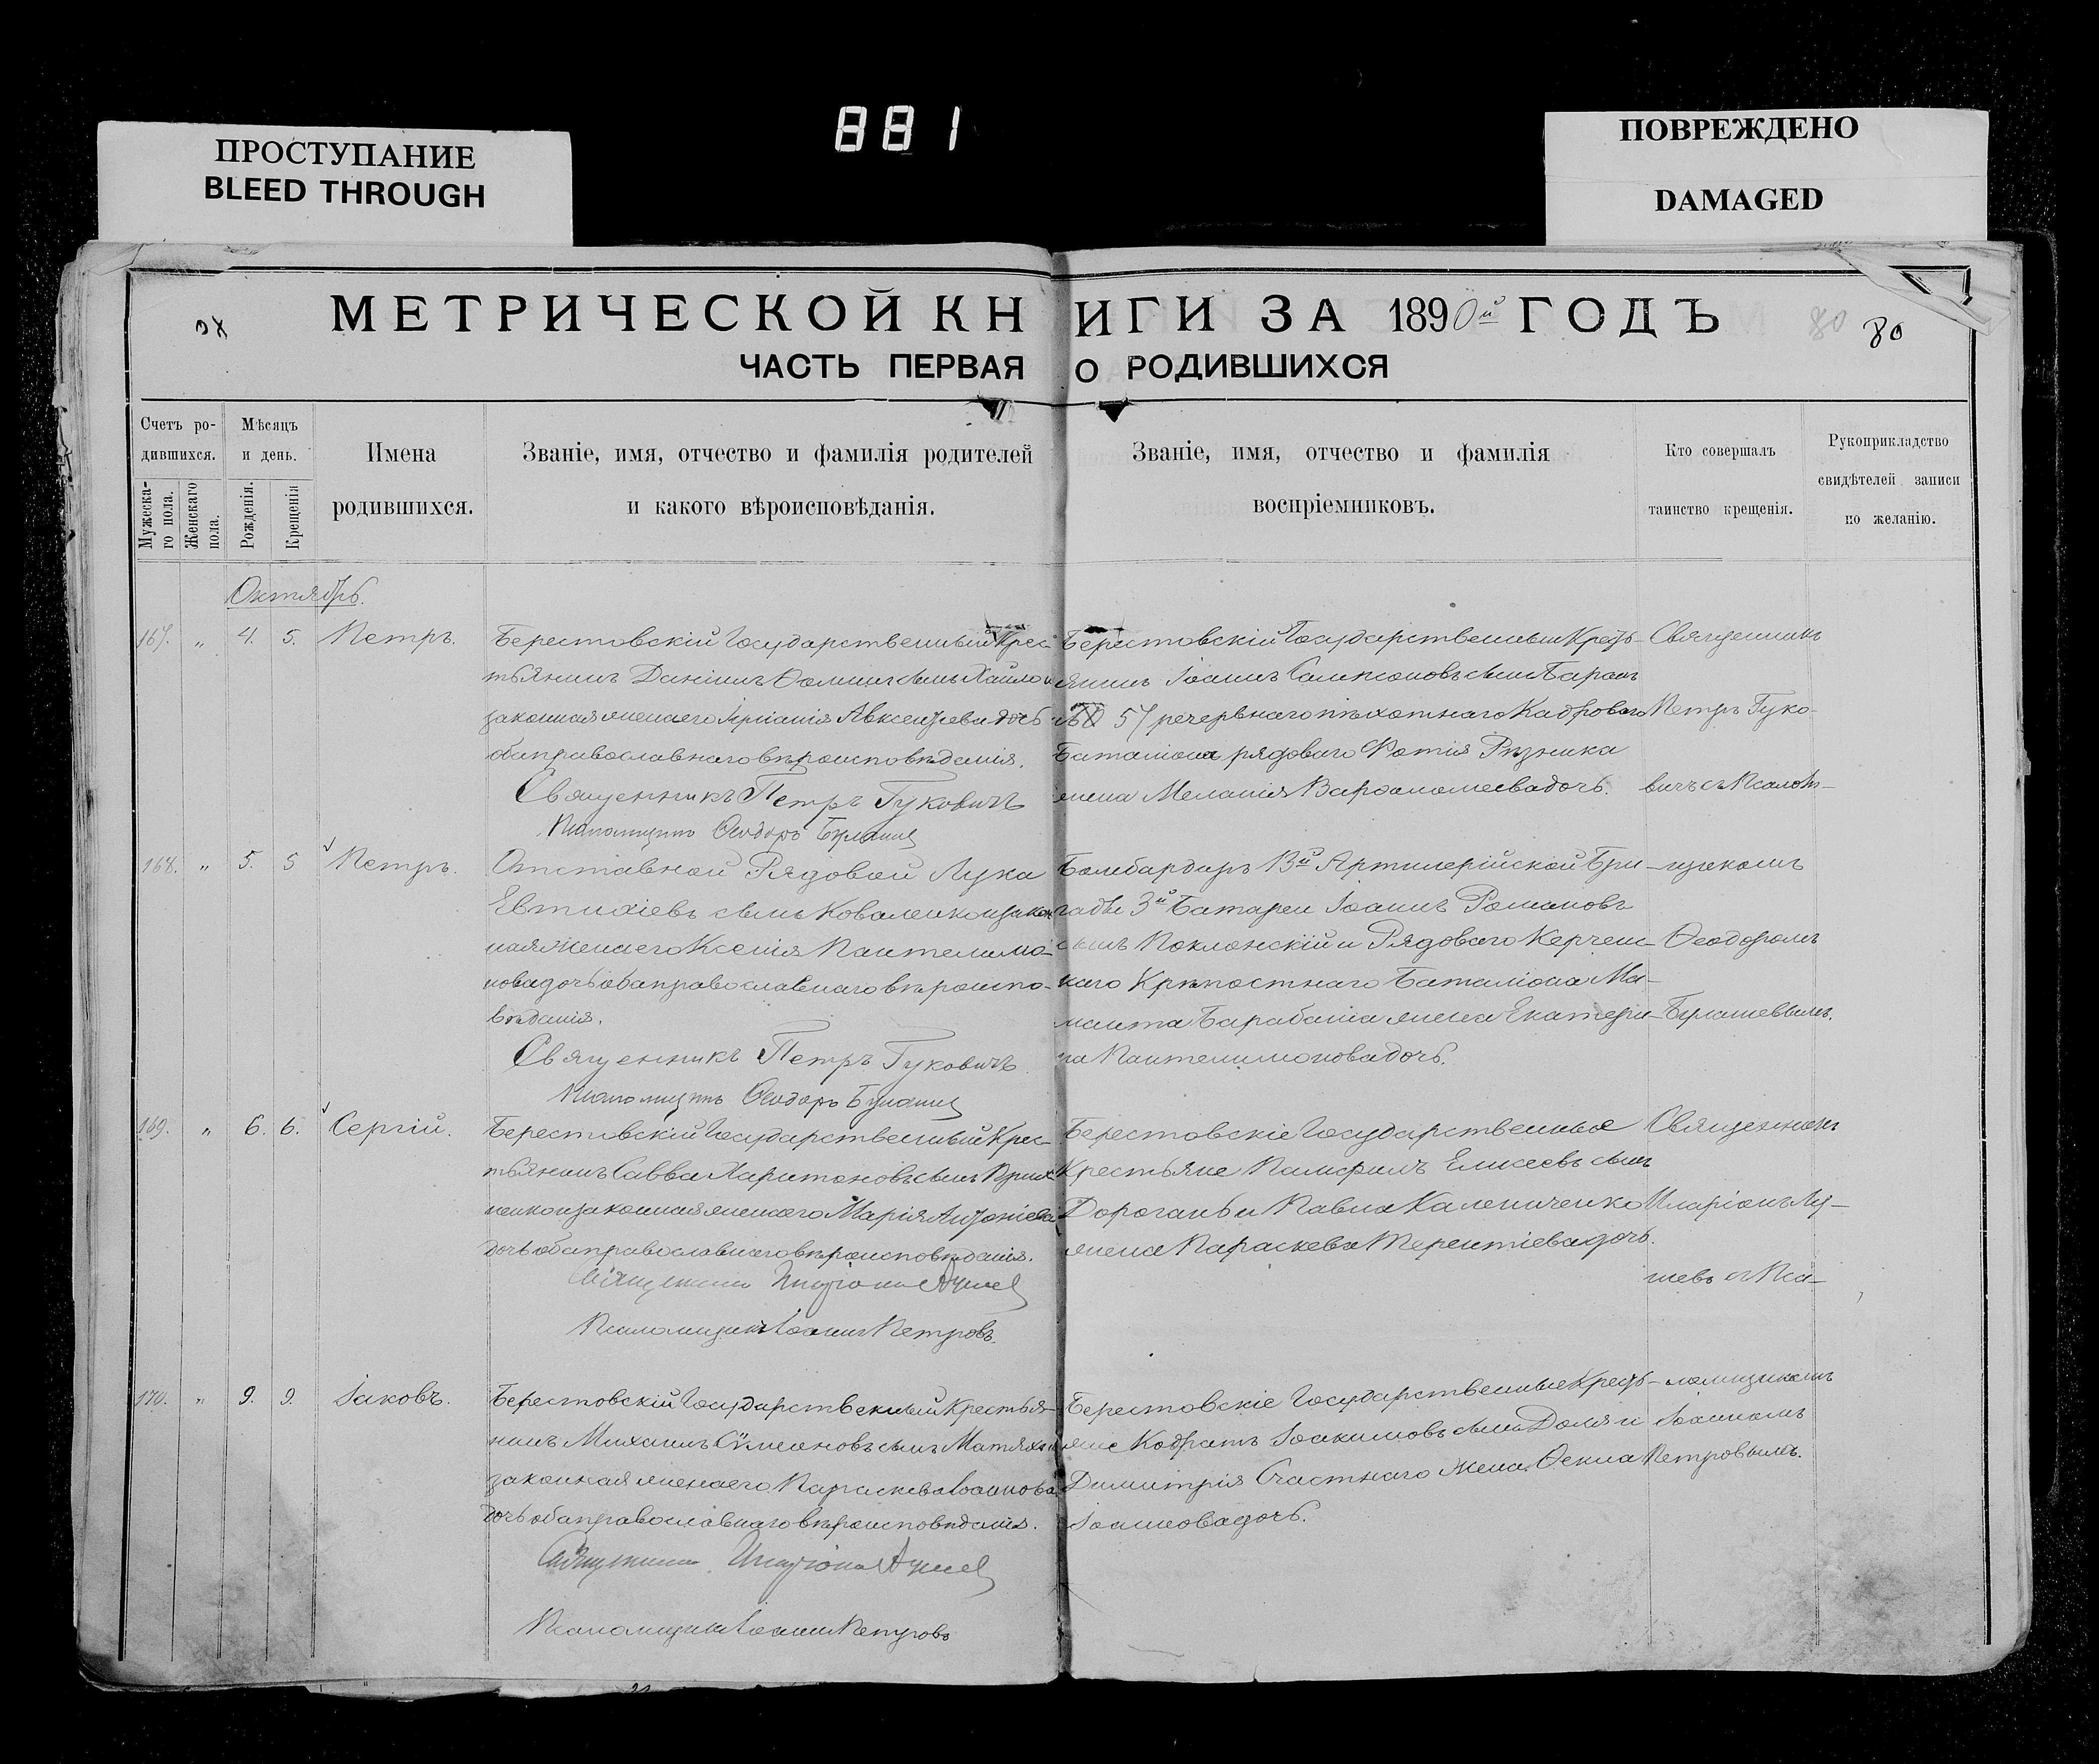 881
ПРОСТУПАНИЕ
BLEED THROUGH
ПОВРЕЖДЕНО
DAMAGED
МЕТРИЧЕСКОЙ КНИГИ ЗА 1890й ГОДЪ
80 80
ЧАСТЬ ПЕРВАЯ О РОДИВШИХСЯ
Счетъ ро-
дившихся.
Мужеска-
го пола.
Женскаго
пола.
Мѣсяцъ
и день.
Рожденія.
Крещенія
Имена
родившихся.
Званіе, имя, отчество и фамилія родителей
и какого вѣроисповѣданія.
Званіе, имя, отчество и фамилія
воспріемниковъ.
Кто совершалъ
таинство крещенія.
Рукоприкладство
свидѣтелей записи
по желанію.
Октябрь.
167. " 4. 5. Петръ.
Берестовскій Государственный Крес-
тьянинъ Даніилъ Ѳоминъ сынъ
законная жена его Авксентіева дочь
оба православнаго вѣроисповѣданія.
Священникъ Петръ Гуковичъ
Псаломщикъ Ѳеодоръ
Берестовскій Государственный Кресть-
янинъ Іоаннъ Сампсоновъ сынъ Баранъ
57 резервнаго пѣхотнаго Кадроваго
Баталіона рядоваго Фотія Рѣзника
жена Меланія Варѳоломеева дочь.
Священникъ
Петръ Гуко-
вичъ съ Псалом-
168. " 5. 5 Петръ.
Отставной Рядовой Лука
Евтихіевъ сынъ Коваленко и закон
ная жена его Ксенія Пантелимо-
нова дочь оба православнаго вѣроиспо-
вѣданія.
Священникъ Петръ Гуковичъ
Псаломщикъ Ѳеодоръ
Бомбардиръ 13й Артилерійской Бри-
гады 3й Батареи Іоаннъ Романовъ
сынъ Поклонскій и Рядоваго Керченс-
каго Крѣпостнаго Баталіона Ма-
жена Екатери-
на Пантелимонова дочь.
щикомъ
Ѳеодоромъ
169. " 6. 6. Сергій.
Берестовскій Государственный Крес-
тьянинъ Савва Харитоновъ сынъ
и законная жена его Марія Антоніева
дочь оба православнаго вѣроисповѣданія.
Священникъ Иларіонъ
Псаломщикъ Іоаннъ Петровъ.
Берестовскіе Государственные
Крестьяне Памфилъ Елисеевъ сынъ
Дорогань и Павла Калениченко
жена Параскева Терентіева дочь.
Священникъ
Иларіонъ
съ Пса-
170. " 9. 9. Іаковъ.
Берестовскій Государственный Крестья-
нинъ Михаилъ Сѷмеоновъ сынъ
законная жена его Параскева Іоаннова
дочь оба православнаго вѣроисповѣданія.
Священникъ Иларіонъ
Псаломщикъ Іоаннъ Петровъ
Берестовскіе Государственные Кресть-
яне Кодратъ Іоакимовъ сынъ Доля и
Димитрія Счастнаго жена Ѳекла
Іоаннова дочь.
ломщикомъ
Іоанномъ
Петровымъ.